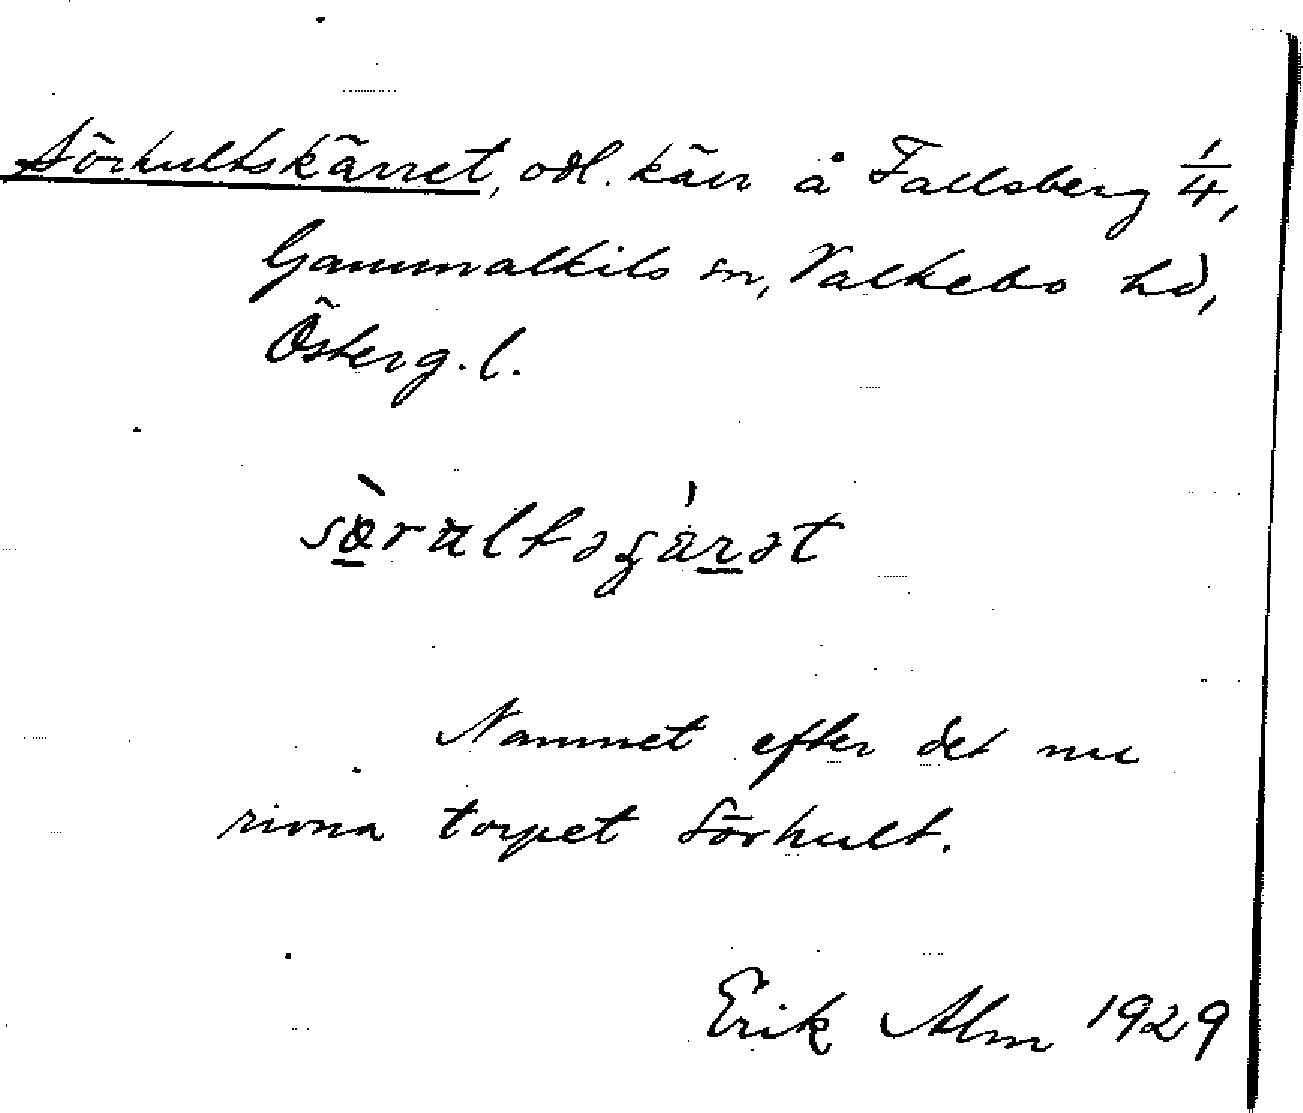 Sörhultskärret, odl. kärr å Fallsberg 1/4,
Gammalkils sn, Valkebo hd,
Österg. l.
Namnet efter det nu
rivna torpet Sörhult.
Erik Alm 1929